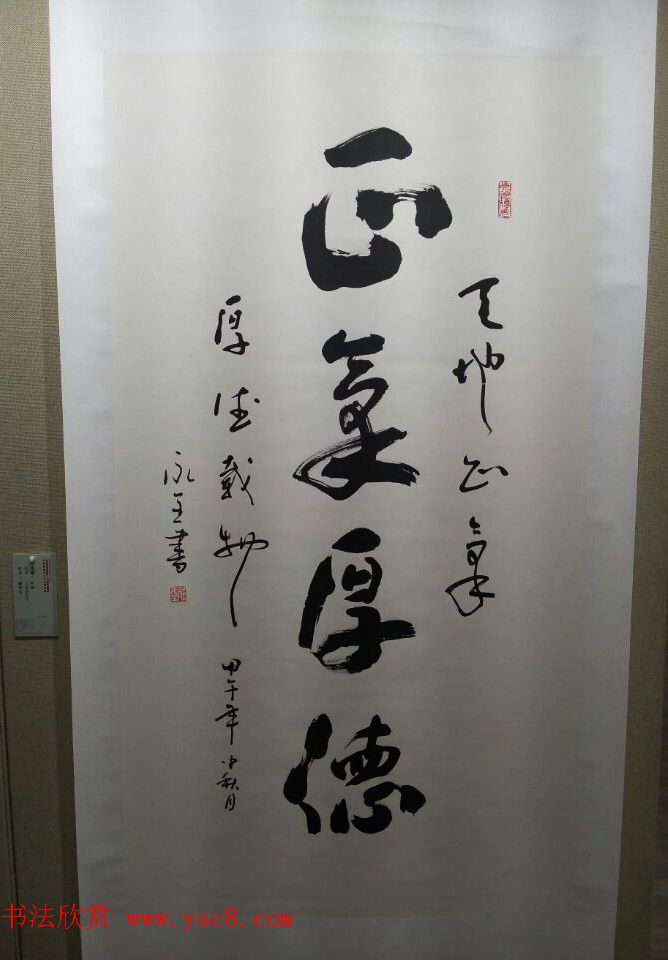 天地正氣
正氣厚德
厚德載物
甲午年中秋月
永全書
书法欣赏 www.yac8.com